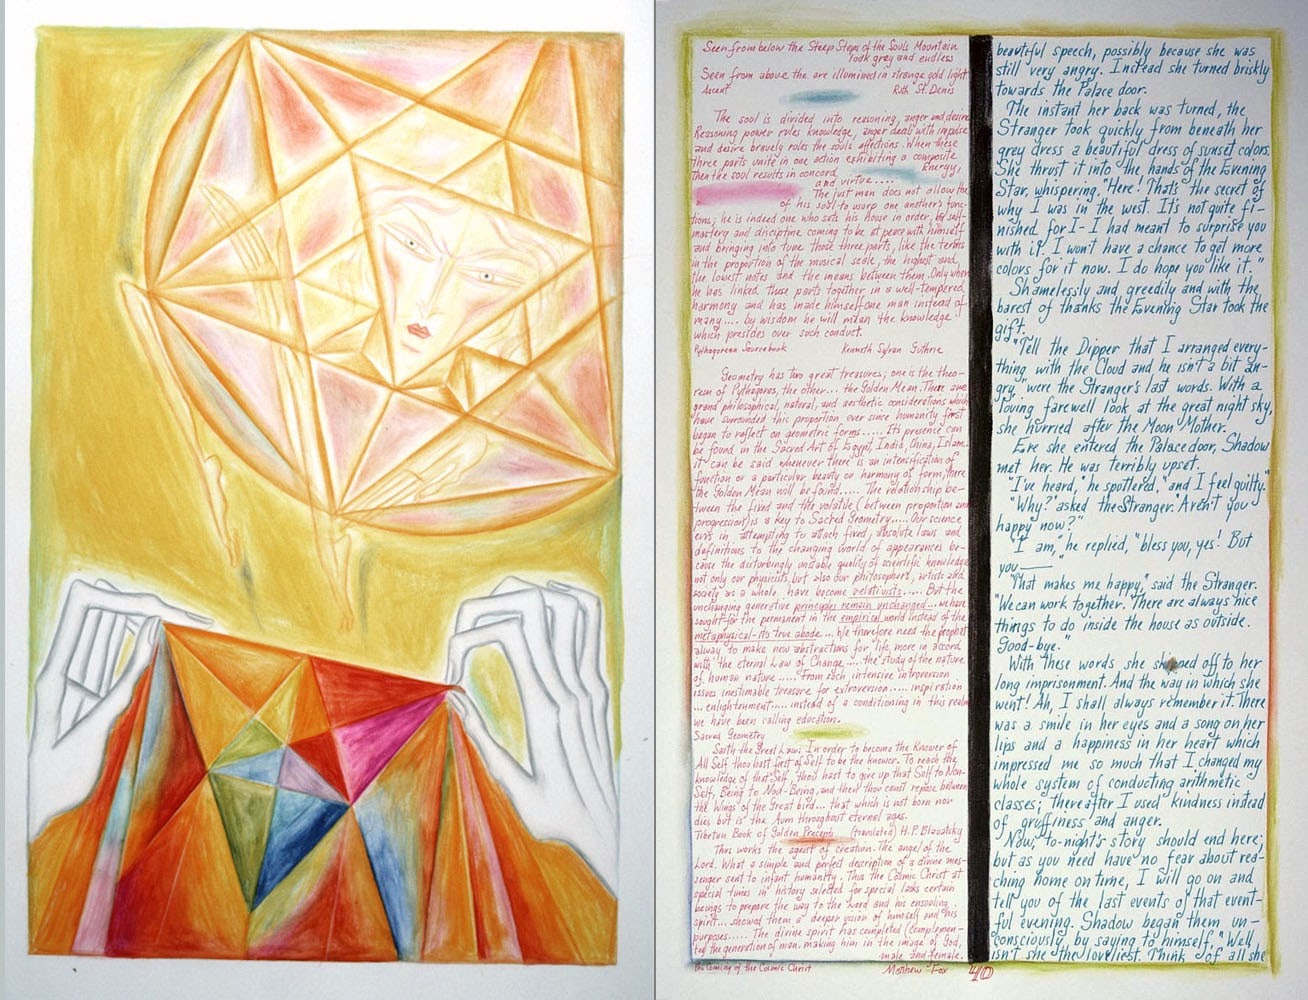 Seen from below the Steep Steps of the Souls Mountain
look grey and endless
Seen from above the are illumined in strange gold light
Ascent Ruth St. Denis
The soul is divided into reasoning, anger and desire
Reasoning power rules knowledge, anger deals with impulse
and desire bravely rules the souls affections. When these
three parts unite in one action exhibiting a composite
Energy,
then the soul results in concord
and virtue....
The just man does not allow the
of his soul to usurp one another's func-
tions; he is indeed one who sets his house in order, by self-
mastery and discipline coming to be at peace with himself
and bringing into tune those three parts, like the terms
in the proportion of the musical scale, the highest and
the lowest notes and the means between them. Only when
he has linked these parts together in a well-tempered
harmony and has made himself one man instead of
many.... by wisdom he will mean the knowledge
which presides over such conduct.
Pythagorean Sourcebook Kenneth Sylvan Guthrie
Geometry has two great treasures; one is the theo-
rem of Pythagoras, the other... the Golden Mean. There are
grand philosophical, natural, and aesthetic considerations which
have surrounded this proportion ever since humanity first
began to reflect on geometric forms..... Its presence can
be found in the Sacred Art of Egypt, India, China, Islam.
it can be said whenever there is an intensification of
function or a particular beauty or harmony of form, there
the Golden Mean will be found..... The relationship be-
tween the fixed and the volatile (between proportion and
progression) is a key to Sacred Geometry..... Our science
errs in attempting to attach fixed, absolute laws and
definitions to the changing world of appearances be-
cause the disturbingly unstable quality of scientific knowledge
not only our physicists, but also our philosophers, artists and
society as a whole, have become relativists...... But the
unchanging generative principles remain unchanged... we have
sought for the permanent in the empirical world instead of the
metaphysical - its true abode... We therefore need the prophet
alway to make new abstractions for life, more in accord
with the eternal Law of Change..... the study of the nature
of human nature ..... From such intensive introversion
issues inestimable treasure for extroversion..... inspiration
... enlightenment..... instead of a conditioning in this realm
we have been calling education.
Sacred Geometry
Saith the Great Law: In order to become the Knower of
All Self thou hast first of Self to be the knower. To reach the
knowledge of that Self, thou hast to give up that Self to Non-
Self, Being to Non-Being, and then thou canst repose between
the Wings of the Great bird... that which is not born nor
dies but is the Aum throughout eternal ages.
Tibetan Book of Golden Precepts (translated) H.P. Blavatsky
Thus works the agent of creation. The angel of the
Lord. What a simple and perfect description of a divine mes-
senger sent to infant humanity. Thus the Cosmic Christ at
special times in history selected for special tasks certain
beings to prepare the way to the Lord and his ensouling
spirit... showed them a deeper vision of himself and his
purposes..... The divine spirit has completed (complemen-
ted the generation of man, making him in the image of God,
male and female.
the Coming of the Cosmic Christ Matthew Fox
40
beautiful speech, possibly because she was
still very angry. Instead she turned briskly
towards the Palace door.
The instant her back was turned, the
Stranger took quickly from beneath her
grey dress a beautiful dress of sunset colors.
She thrust it into the hands of the Evening
Star, whispering. "Here! Thats the secret of
why I was in the west. It's not quite fi-
nished, for I - I had meant to surprise you
with it. I won't have a chance to get more
colors for it now. I do hope you like it."
Shamelessly and greedily and with the
barest of thanks the Evening Star took the
gift.
"Tell the Dipper that I arranged every-
thing with the Cloud and he isn't a bit an-
gry," were the Stranger's last words. With a
loving farewell look at the great night sky,
she hurried after the Moon Mother.
Ere she entered the Palace door, Shadow
met her. He was terribly upset.
"I've heard," he spottered, "and I feel guilty."
"Why?" asked the Stranger. "Aren't you
happy now?"
"I am," he replied, "bless you, yes! But
you——"
"That makes me happy," said the Stranger.
"We can work together. There are always nice
things to do inside the house as outside.
Good-bye."
With these words she off to her
long imprisonment. And the way in which she
went! Ah, I shall always remember it. There
was a smile in her eyes and a song on her
lips and a happiness in her heart which
impressed me so much that I changed my
whole system of conducting arithmetic
classes; thereafter I used kindness instead
of gruffiness and anger.
Now, to-night's story should end here;
but as you need have no fear about rea-
ching home on time, I will go on and
tell you of the last events of that event-
ful evening. Shadow began them un-
consciously, by saying to himself, "Well,
isn't she the loveliest. Think of all she